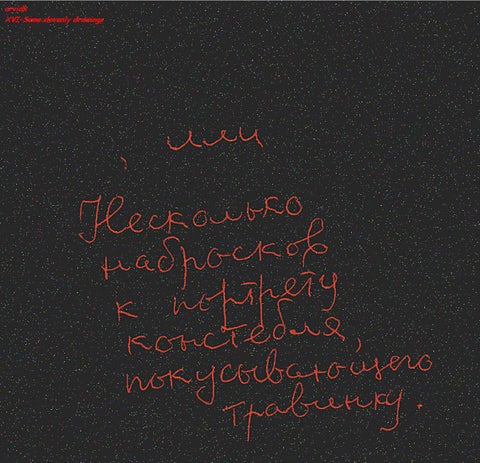 arvidk
XVI-Some slovenly drawings
, или
Несколько
набросков
к портрету
констебля,
покусывающего
травинку.